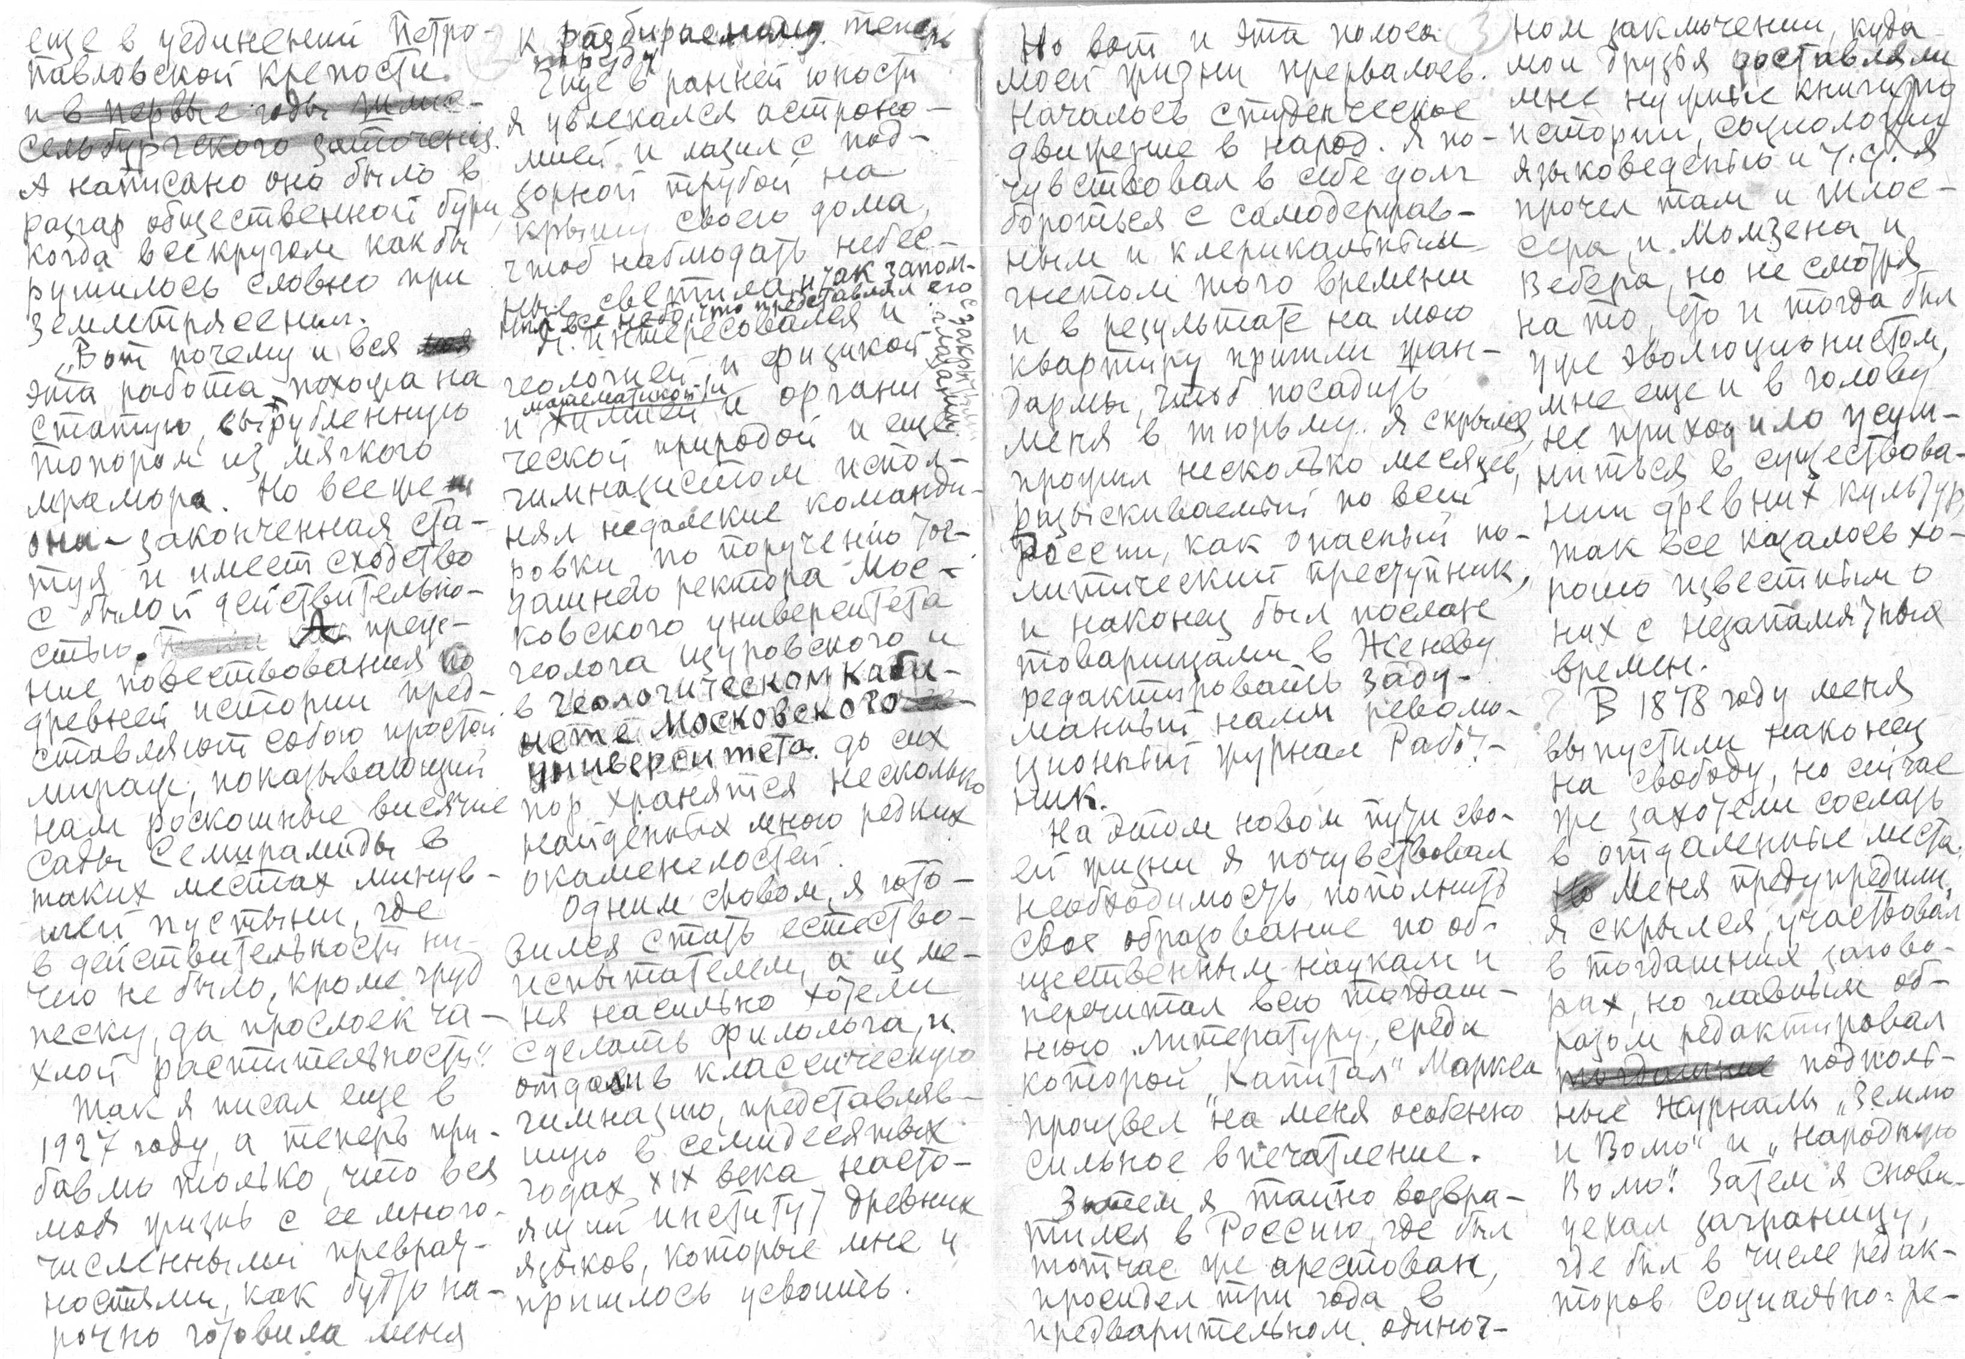 еще в уединении Петро-
павловской крепости.
и в первые годы шлис-
сельбургского заточения.
А написано оно было в
разгар общественной бури,
когда все кругом как бы
рушилось словно при
землетрясении.
„Вот почему и вся моя
эта работа похожа на
статую, вырубленную
топором из мягкого
мрамора. Но все же
она - законченная ста-
туя и имеет сходство
с былой действительно-
стью. А преж-
ние повествования по
древней истории пред-
ставляют собою простой
мираж, показывающий
нам роскошные висячие
сады Семирамиды в
таких местах минув-
шей пустыни, где
в действительности ни-
чего не было, кроме груд
песку, да прослоек ча-
хлой растительности“.
Так я писал еще в
1927 году, а теперь при-
бавлю только, что вся
моя жизнь с ее много-
численными превратностями,
как будто на-
рочно готовила меня
к разбираемому теперь
труду
2
Еще в ранней юности
я увлекался астроно-
мией и лазил с под-
зорной трубой на
крышу своего дома,
чтоб наблюдать небес-
ные светила и так запом-
нил все небо, что представлял его
с закрытыми глазами.
Я интересовался и
геологией, и физикой
математикой и
и химией и органи
ческой природой и еще
гимназистом испол-
нял недалекие команди-
ровки по поручению тог-
дашнего ректора Мос-
ковского университета
геолога Щуровского и
в геологическом каби-
нете Московского
университета до сих
пор хранятся несколько
найденных мною редких
окаменелостей.
Одним словом, я гото-
вился стать естество-
испытателем, а из ме-
ня насильно хотели
сделать филолога, и
отдали в классическую
гимназию, представляв-
шую в семидесятых
годах XIX века насто-
ящий институт древних
языков, которые мне и
пришлось усвоить.
3
Но вот и эта полоса
моей жизни прервалась.
Началось студенческое
движение в народ. Я по-
чувствовал в себе долг
бороться с самодержав-
ным и клерикальным
гнетом того времени
и в результате на мою
квартиру пришли жан-
дармы, чтоб посадить
меня в тюрьму. Я скрылся,
прожил несколько месяцев,
разыскиваемый по всей
России, как опасный по-
литический преступник,
и наконец был послан
товарищами в Женеву
редактировать заду-
манный нами револю-
ционный журнал Работ-
ник.
На этом новом пути сво-
ей жизни я почувствовал
необходимость пополнить
свое образование по об-
щественным наукам и
перечитал всю тогдаш-
нюю литературу, среди
которой „Капитал“ Маркса
произвел на меня особенно
сильное впечатление.
Затем я тайно возвра-
тился в Россию, где был
тотчас же арестован,
просидел три года в
предварительном одиноч-
ном заключении, куда
мои друзья доставляли
мне нужные книги по
истории, социологии
языковедению и т.д. Я
прочел там и Шлос-
сера, и Момзена и
Вебера, но не смотря
на то, что и тогда был
уже эволюционистом,
мне еще и в голову
не приходило усум-
ниться в существова-
нии древних культур,
так все казалось хо-
рошо известным о
них с незапамятных
времен.
В 1878 году меня
выпустили наконец
на свободу, но сейчас
же захотели сослать
в отдаленные места.
Но Меня предупредили,
я скрылся, участвовал
в тогдашних загово-
рах, но главным об-
разом редактировал
тогдашние подполь-
ные журналы „Землю
и Волю“ и „Народную
Волю“. Затем я снова
уехал заграницу,
где был в числе редак-
торов Социально-Ре-